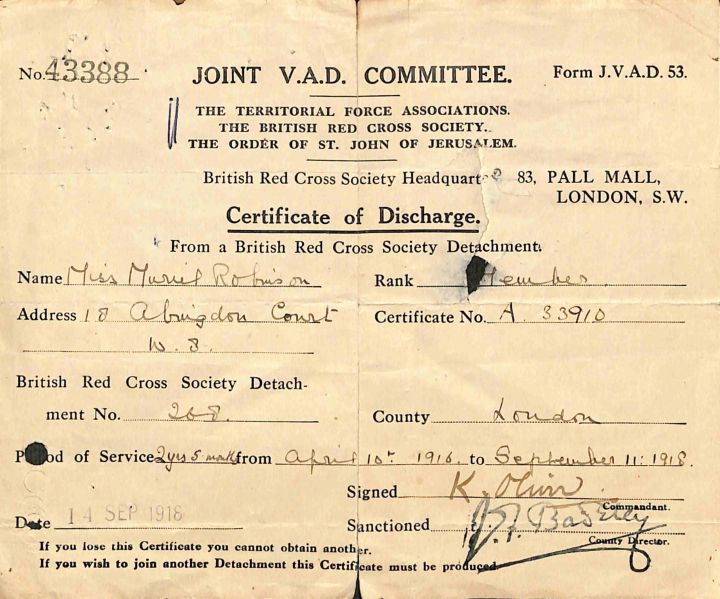 No. 43388 JOINT V.A.D. COMMITTEE. Form J.V.A.D. 53.
THE TERRITORIAL FORCE ASSOCIATIONS.
THE BRITISH RED CROSS SOCIETY.
THE ORDER OF ST. JOHN OF JERUSALEM.
British Red Cross Society Headquart 83, PALL MALL,
LONDON, S.W.
Certificate of Discharge.
From a British Red Cross Society Detachment.
Name Miss Muriel Robinson Rank Member.
Address 18 Abingdon Court Certificate No. A 33910
W. 8.
British Red Cross Society Detach-
ment No. 268. County London
P od of Service 2yrs 5 months from April 10th 1916 to September 11: 1918.
Signed K.
Commandant.
Date 14 SEP 1918 Sanctioned
County Director.
If you lose this Certificate you cannot obtain another.
If you wish to join another Detachment this Certificate must be produced